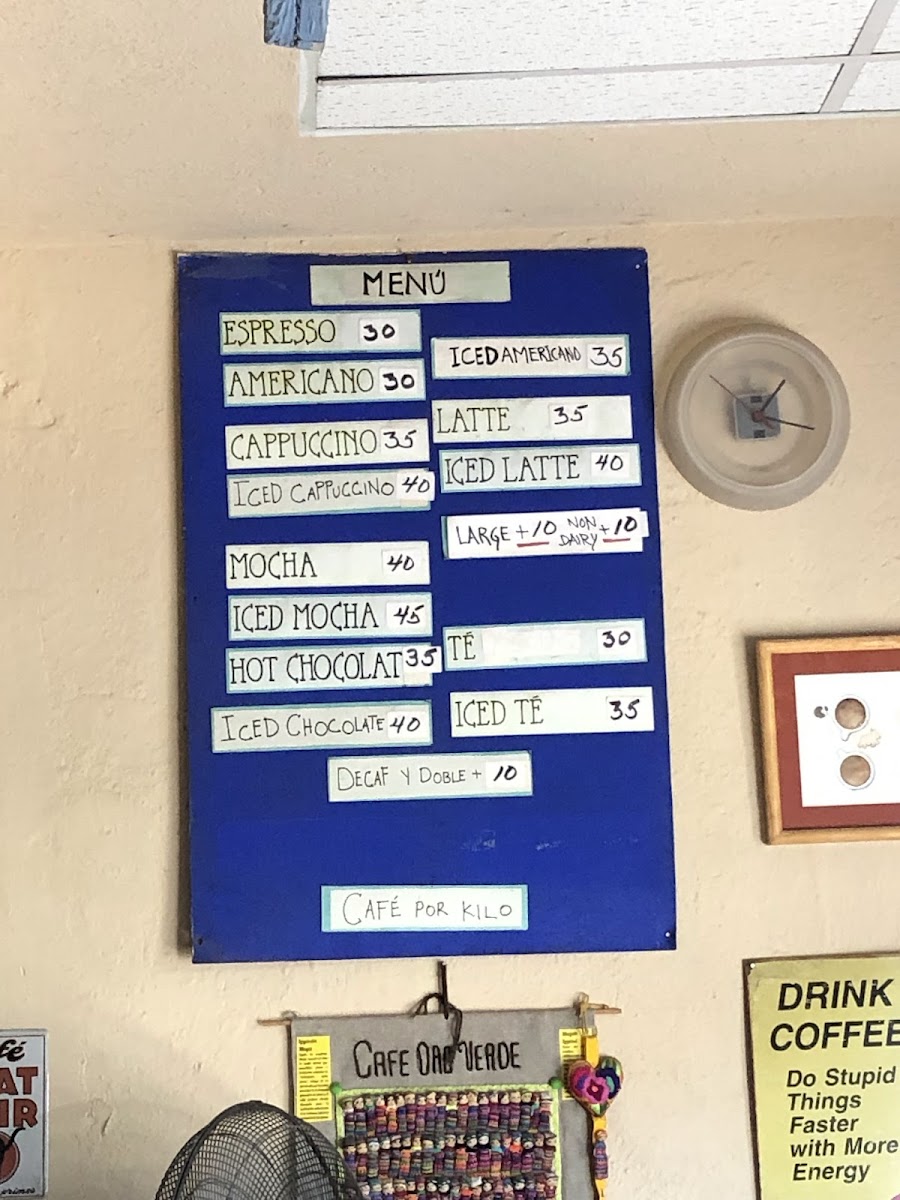 MENÚ
ESPRESSO 30
AMERICANO 30
CAPPUCCINO 35
ICED CAPPUCCINO 40
MOCHA 40
ICED MOCHA 45
HOT CHOCOLAT 35
ICED CHOCOLATE 40
ICED AMERICANO 35
LATTE 35
ICED LATTE 40
LARGE +10 NON DAIRY +10
TÉ 30
ICED TÉ 35
DECAF Y DOBLE + 10
CAFÉ POR KILO
CAFE ORO VERDE
DRINK
COFFEE
Do Stupid
Things
Faster
with More
Energy
fé
AT
IR